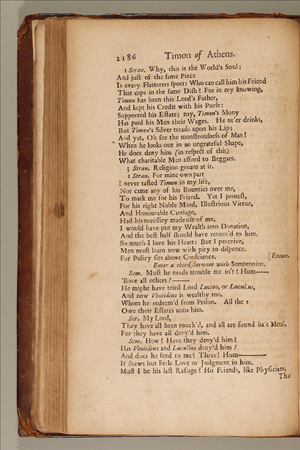 2186 Timon of Athens.
1 Stran. Why, this is the World's Soul;
And just of the same Piece
Is every Flatterers sport: Who can call him his Friend
That dips in the same Dish? For in my knowing,
Timon has been this Lord's Father,
And kept his Credit with his Purse:
Supported his Estate; nay, Timon's Mony
Has paid his Men their Wages. He ne'er drinks,
But Timon's Silver treads upon his Lip;
And yet, Oh see the monstrousness of Man!
When he looks out in an ungrateful Shape,
He does deny him (in respect of his)
What charitable Men afford to Beggars.
3 Stran. Religion groans at it.
1 Stran. For mine own part
I never tasted Timon in my life,
Nor came any of his Bounties over me,
To mark me for his Friend. Yet I protest,
For his right Noble Mind, Illustrious Virtue,
And Honourable Carriage,
Had his necessity made use of me,
I would have put my Wealth into Donation,
And the best half should have return'd to him,
So much I love his Heart: But I perceive,
Men must learn now with pity to dispence,
For Policy sits above Conscience. [Exeunt.
Enter a third Servant with Sempronius.
Sem. Must he needs trouble me in't? Hum——
'Bove all others?——
He might have tried Lord Lucius, or Lucullus,
And now Ventidius is wealthy too,
Whom he redeem'd from Prison. All these
Owe their Estates unto him.
Ser. My Lord,
They have all been touch'd, and all are found base Metal,
For they have all deny'd him.
Sem. How? Have they deny'd him?
Has Ventidius and Lucullus deny'd him?
And does he send to me? Three! Hum——
It shews but little Love or Judgment in him.
Must I be his last Refuge? His Friends, like Physicians,
Thri